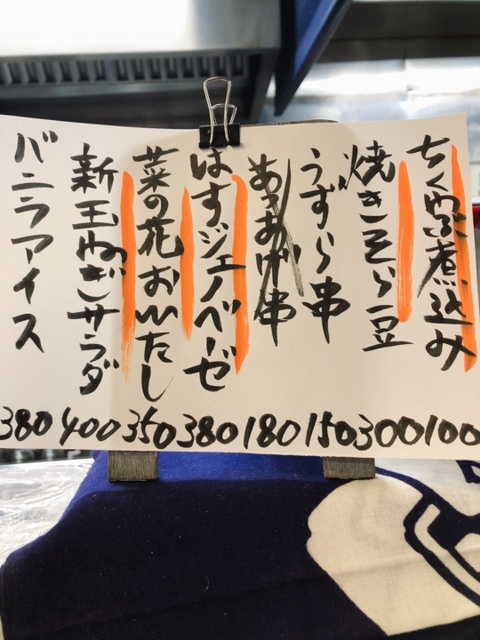 ちくわぶ煮込み 100
焼きそら豆 300
うずら串 150
あつあげ串 180
はすジェノベーゼ 380
菜の花おひたし 350
新玉ねぎサラダ 400
バニラアイス 380